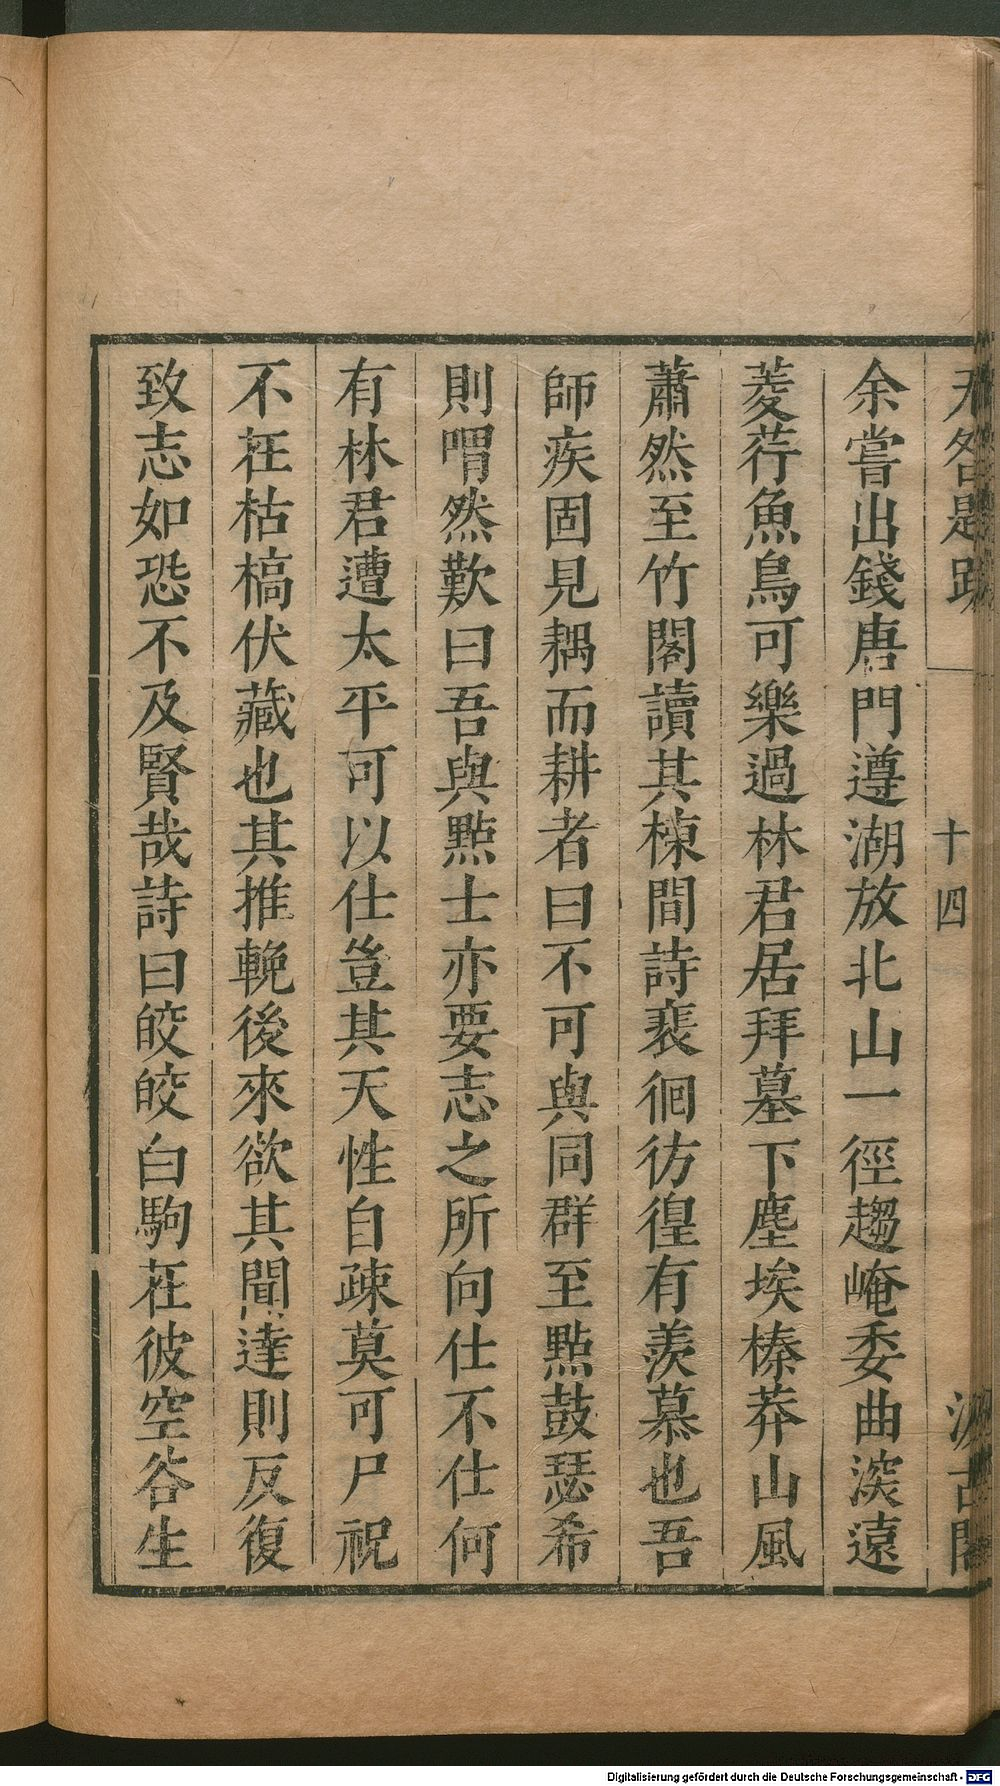 无咎題跋
十四
汲古閣
余嘗出錢唐門遵湖放北山一徑趨崦委曲深遠
菱荇魚鳥可樂過林君居拜墓下塵埃榛莽山風
蕭然至竹閣讀其棟間詩裴徊彷徨有羨慕也吾
師疾固見耦而耕者曰不可與同群至點鼓瑟希
則喟然歎曰吾與點士亦要志之所向仕不仕何
有林君遭太平可以仕豈其天性自疎莫可尸祝
不在枯槁伏藏也其推輓後來欲其聞達則反復
致志如恐不及賢哉詩曰皎皎白駒在彼空谷生
Digitalisierung gefördert durch die Deutsche Forschungsgemeinschaft - DFG